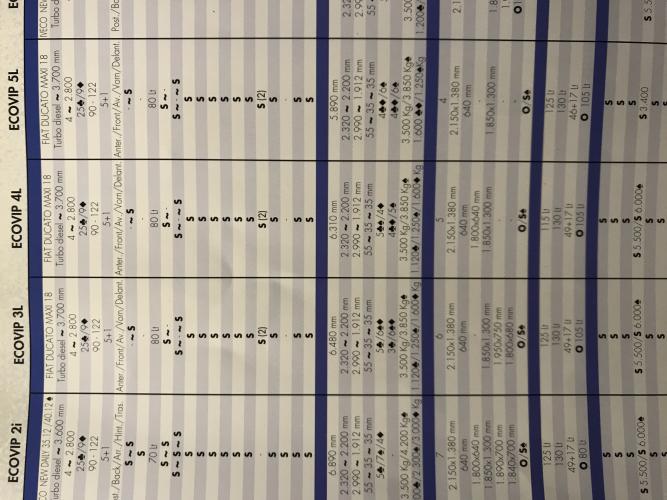 ECOVIP 2i ECOVIP 3L ECOVIP 4L ECOVIP 5L
NEW DAILY 35.12/40.12♠ FIAT DUCATO MAXI 18 FIAT DUCATO MAXI 18 FIAT DUCATO MAXI 18 IVECO NEW
Turbo diesel ~ 3.600 mm Turbo diesel ~ 3.700 mm Turbo diesel ~ 3.700 mm Turbo diesel ~ 3.700 mm Turbo
4 ~ 2.800 4 ~ 2.800 4 ~ 2.800 4 ~ 2.800
25♣/9♠ 25♣/9♠ 25♣/9♠ 25♣/9♠
90 - 122 90 - 122 90 - 122 90 - 122
5+1 5+1 5+1 5+1
Back/Arr./Hint./Tras. Anter./Front/Av./Vorn/Delant. Anter./Front/Av./Vorn/Delant. Anter./Front/Av./Vorn/Delant. Post./Bac
S ~ S · ~ S · ~ S · ~ S
70 lt 80 lt 80 lt 80 lt
S ~ S ~ S S ~ · ~ S S ~ · ~ S S ~ · ~ S
S S S S
S S S S
S S S S
S S S S
S S S S
S S S S
S S (2) S (2) S (2)
S · · ·
S S S S
S S S S
6.890 mm 6.480 mm 6.310 mm 5.890 mm
2.320 ~ 2.200 mm 2.320 ~ 2.200 mm 2.320 ~ 2.200 mm 2.320 ~ 2.200 mm
2.990 ~ 1.912 mm 2.990 ~ 1.912 mm 2.990 ~ 1.912 mm 2.990 ~ 1.912 mm
55 ~ 35 ~ 35 mm 55 ~ 35 ~ 35 mm 55 ~ 35 ~ 35 mm 55 ~ 35 ~ 35 mm
3.500 Kg/4.200 Kg♠ 3.500 Kg/3.850 Kg♠ 3.500 Kg/3.850 Kg♠ 3.500 Kg/3.850 Kg♠ 3.500
7 6 5 4
2.150x1.380 mm 2.150x1.380 mm 2.150x1.380 mm 2.150x1.380 mm
640 mm 640 mm 640 mm 640 mm
1.800x640 mm 1.800x640 mm
1.850x1.300 mm 1.850x1.300 mm 1.850x1.300 mm 1.850x1.300 mm
1.890x700 mm 1.950x750 mm
1.840x700 mm 1.800x680 mm
O/S♠ O/S♠ O/S♠ O/S♠
125 lt 125 lt 115 lt 125 lt
130 lt 130 lt 130 lt 130 lt
49+17 lt 49+17 lt 49+17 lt 46+17 lt
O 80 lt O 105 lt O 105 lt O 105 lt
S S S S
S S S S
S S S S
S 5.500/S 6.000♠ S 5.500/S 6.000♠ S 5.500/S 6.000♠ S 3.400
S S S S